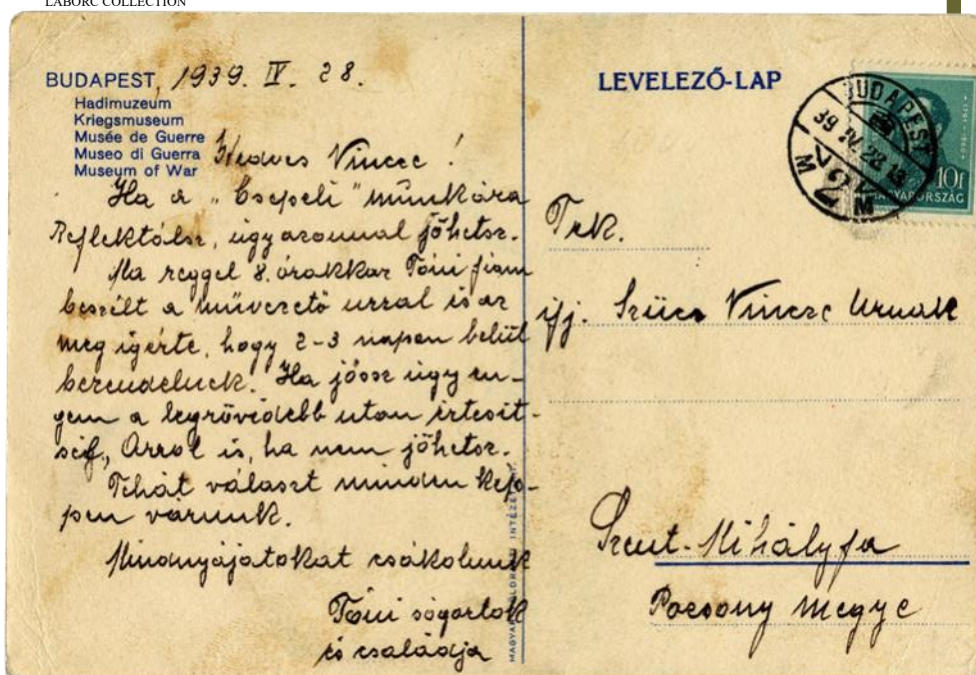 LABORC COLLECTION
BUDAPEST, 1939. IV. 28.
Hadimuzeum
Kriegsmuseum
Musée de Guerre
Museo di Guerra
Museum of War
Kedves Vincec !
Ha a „Csepeli" munkára
Reflektálsz, úgy azonnal jőhetsz.
Ma reggel 8. órakkor Tóni fiam
beszélt a művezető urral is az
meg igérte, hogy 2-3 napon belül
berendelnek. Ha jössz úgy en-
gem a legrövidebb uton értesit-
séf., Arrol is, ha nem jőhetsz.
Tehát választ minden kép-
pen várunk.
Mindnyájatokat csókolunk
Tóni sógortok
és családja
LEVELEZŐ-LAP
BUDAPEST
39 IV. 28 18
M 2 M
10f
MAGYARORSZÁG
Tek.
ifj. Szücs Vincze Urnak
Szent-Mihályfa
Pozsony megye